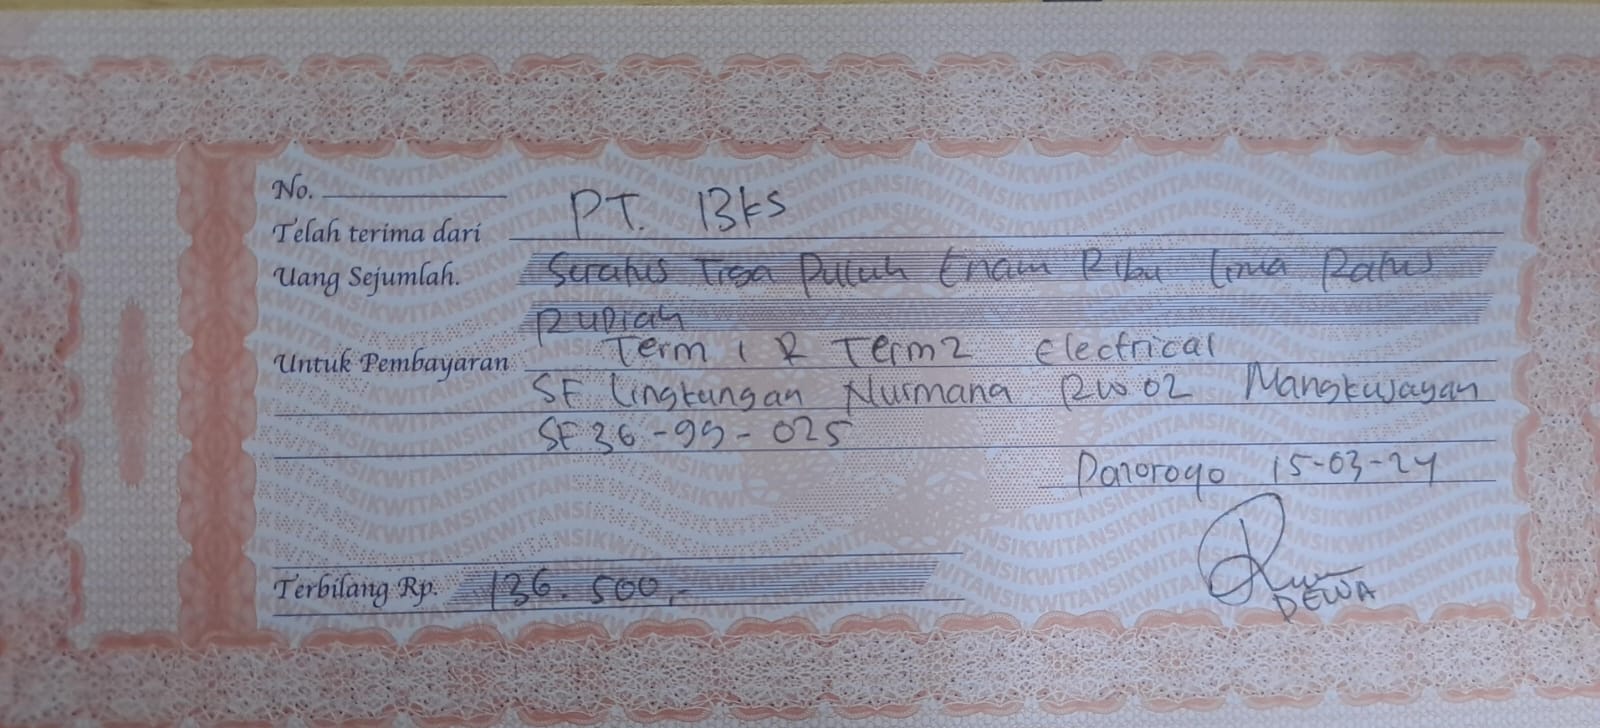 No.
Telah terima dari PT. BKS
Uang Sejumlah. Seratus Tiga Puluh Enam Ribu Lima Ratus
Rupiah
Untuk Pembayaran Term 1 & Term 2 Electrical
SF Lingkungan Nurmana RW 02 Mangkujayan
SF36-99-025
Ponorogo 15-03-24
Terbilang Rp. 136.500,-
DEWA